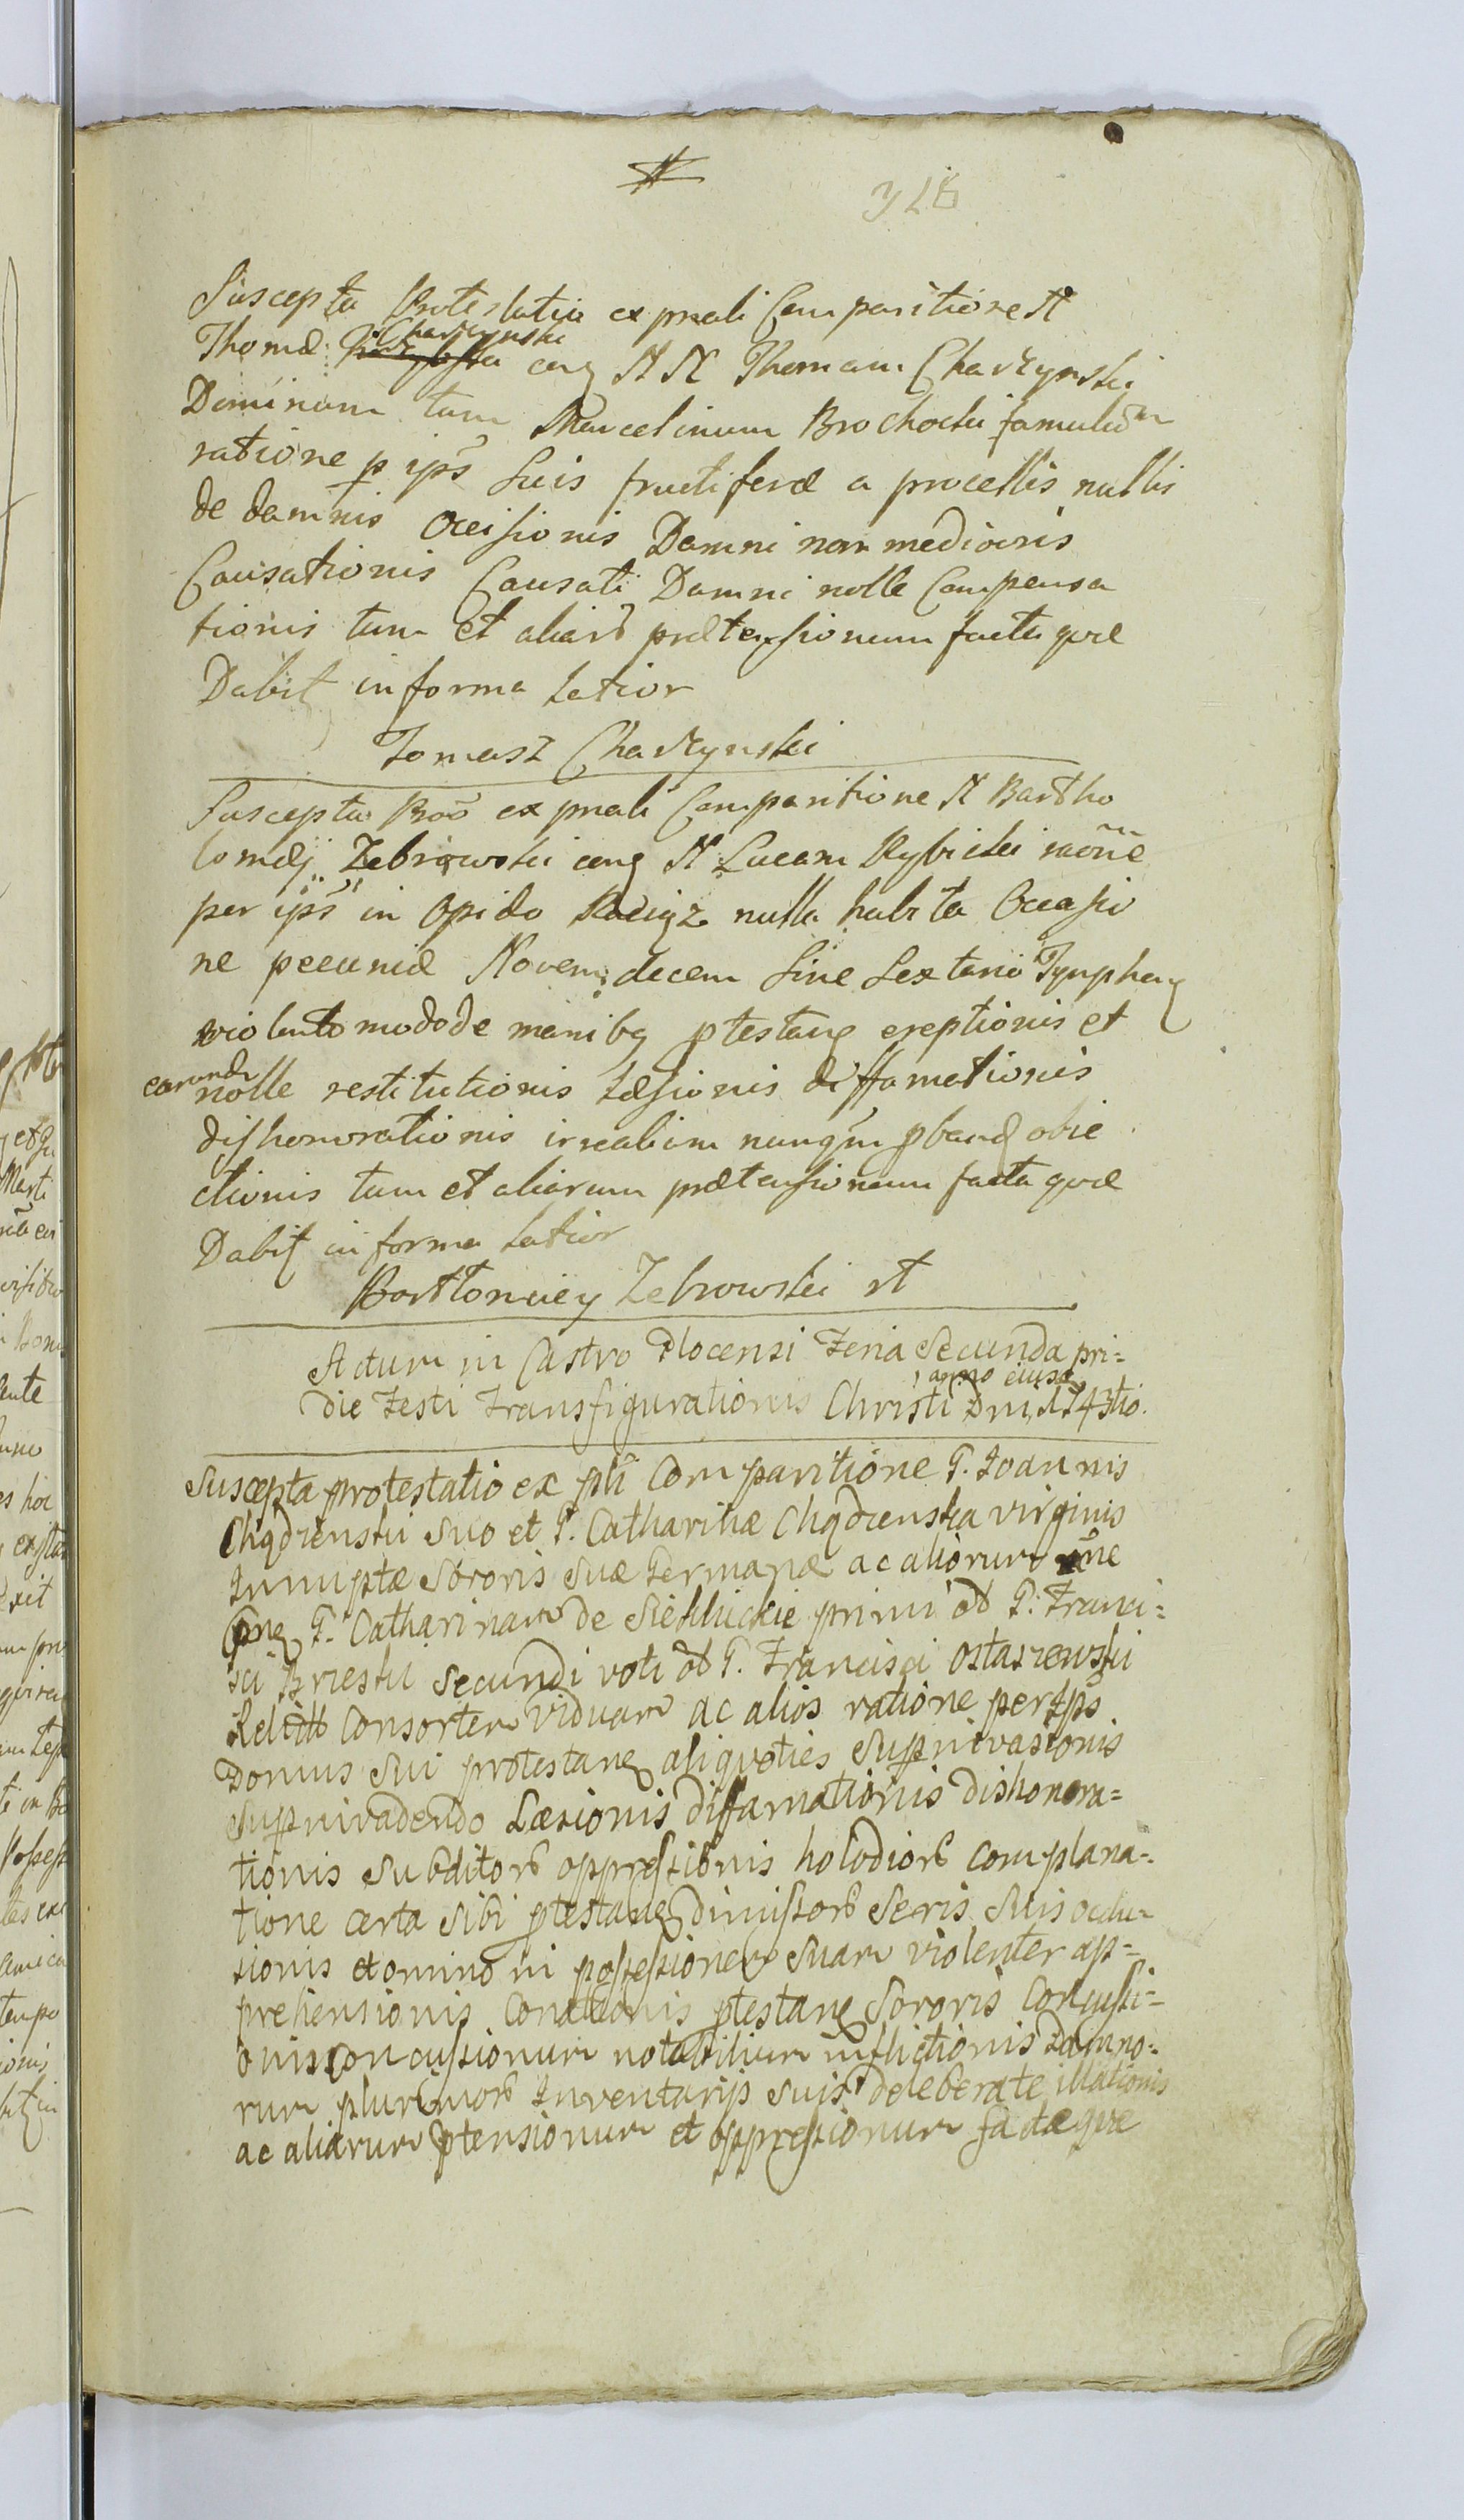 328
Suscepta Protestatio ex prnali Comparitione N
Thomæ Charzynski cerꝗ N N Thomam Charzynski
Dominum tum Marcelinum Brochocki famulum
ratione p ips̃ Suis fructiferæ a procellis nullis
de damnis Occisionis Damni non mediocris
Causationis Causati Damni nolle Compensa
tionis tum et aliarũ prætensionum facta quæ
Dabit in forma Latior
Tomasz Charzynski
Suscepta Pros̃ ex prnali Comparitione N Bartho
lomæj Zebrowski cerꝗ N Lucam Rybicki raõne
per ips̃ in Opido Raciąz nulla habita Occasio
ne pecuniæ Novem decem Sine Sextario Tympharꝗ
violento modo de manibꝗ ptestanꝗ ereptionis et
earund nolle restitutionis Læsionis diffamationis
dishonorationis irrealium nunqm pbandꝗ obie
ctionis tum et aliarum prætensionum facta quæ
Dabit in forma Latior
Bartłomiey Zebrowski
Actum in Castro Plocensi Feria Secunda pri=
die Festi Transfigurationis Christi Dni, anno eiusd 1743tio.
Suscepta protestatio ex pli Comparitione G. Joannis
Chądzenski suo et G. Catharinæ Chądzenska virginis
Innuptæ Sororis suæ Germanæ ac aliorum nñe
Cerꝗ G. Catharinam de Siekluckie primi ad G. Franci=
sci Brzeski Secundi voti ad G. Francisci Ostaszewski
Relict Consortem Viduam ac alios ratione per Ips̃
Domus sui protestanꝗ aliquoties Suprinvasionis
Suprinvadendo Læsionis diffamationis dishonora=
tionis Subditorũ oppressionis holodiorũ Complana=
tione certa sibi ptestanꝗ dimissorũ Seris Suis occlu=
sionis et omnino in possessionem Suam violenter ap=
prehensionis Conationis ptestanꝗ Sororis Concussi=
onis Concussionum notabilium inflictionis Damno=
rum plurimorũ Inventarijs suis deleberate illationis
ac aliarum ptensionum et oppressionum facta quæ